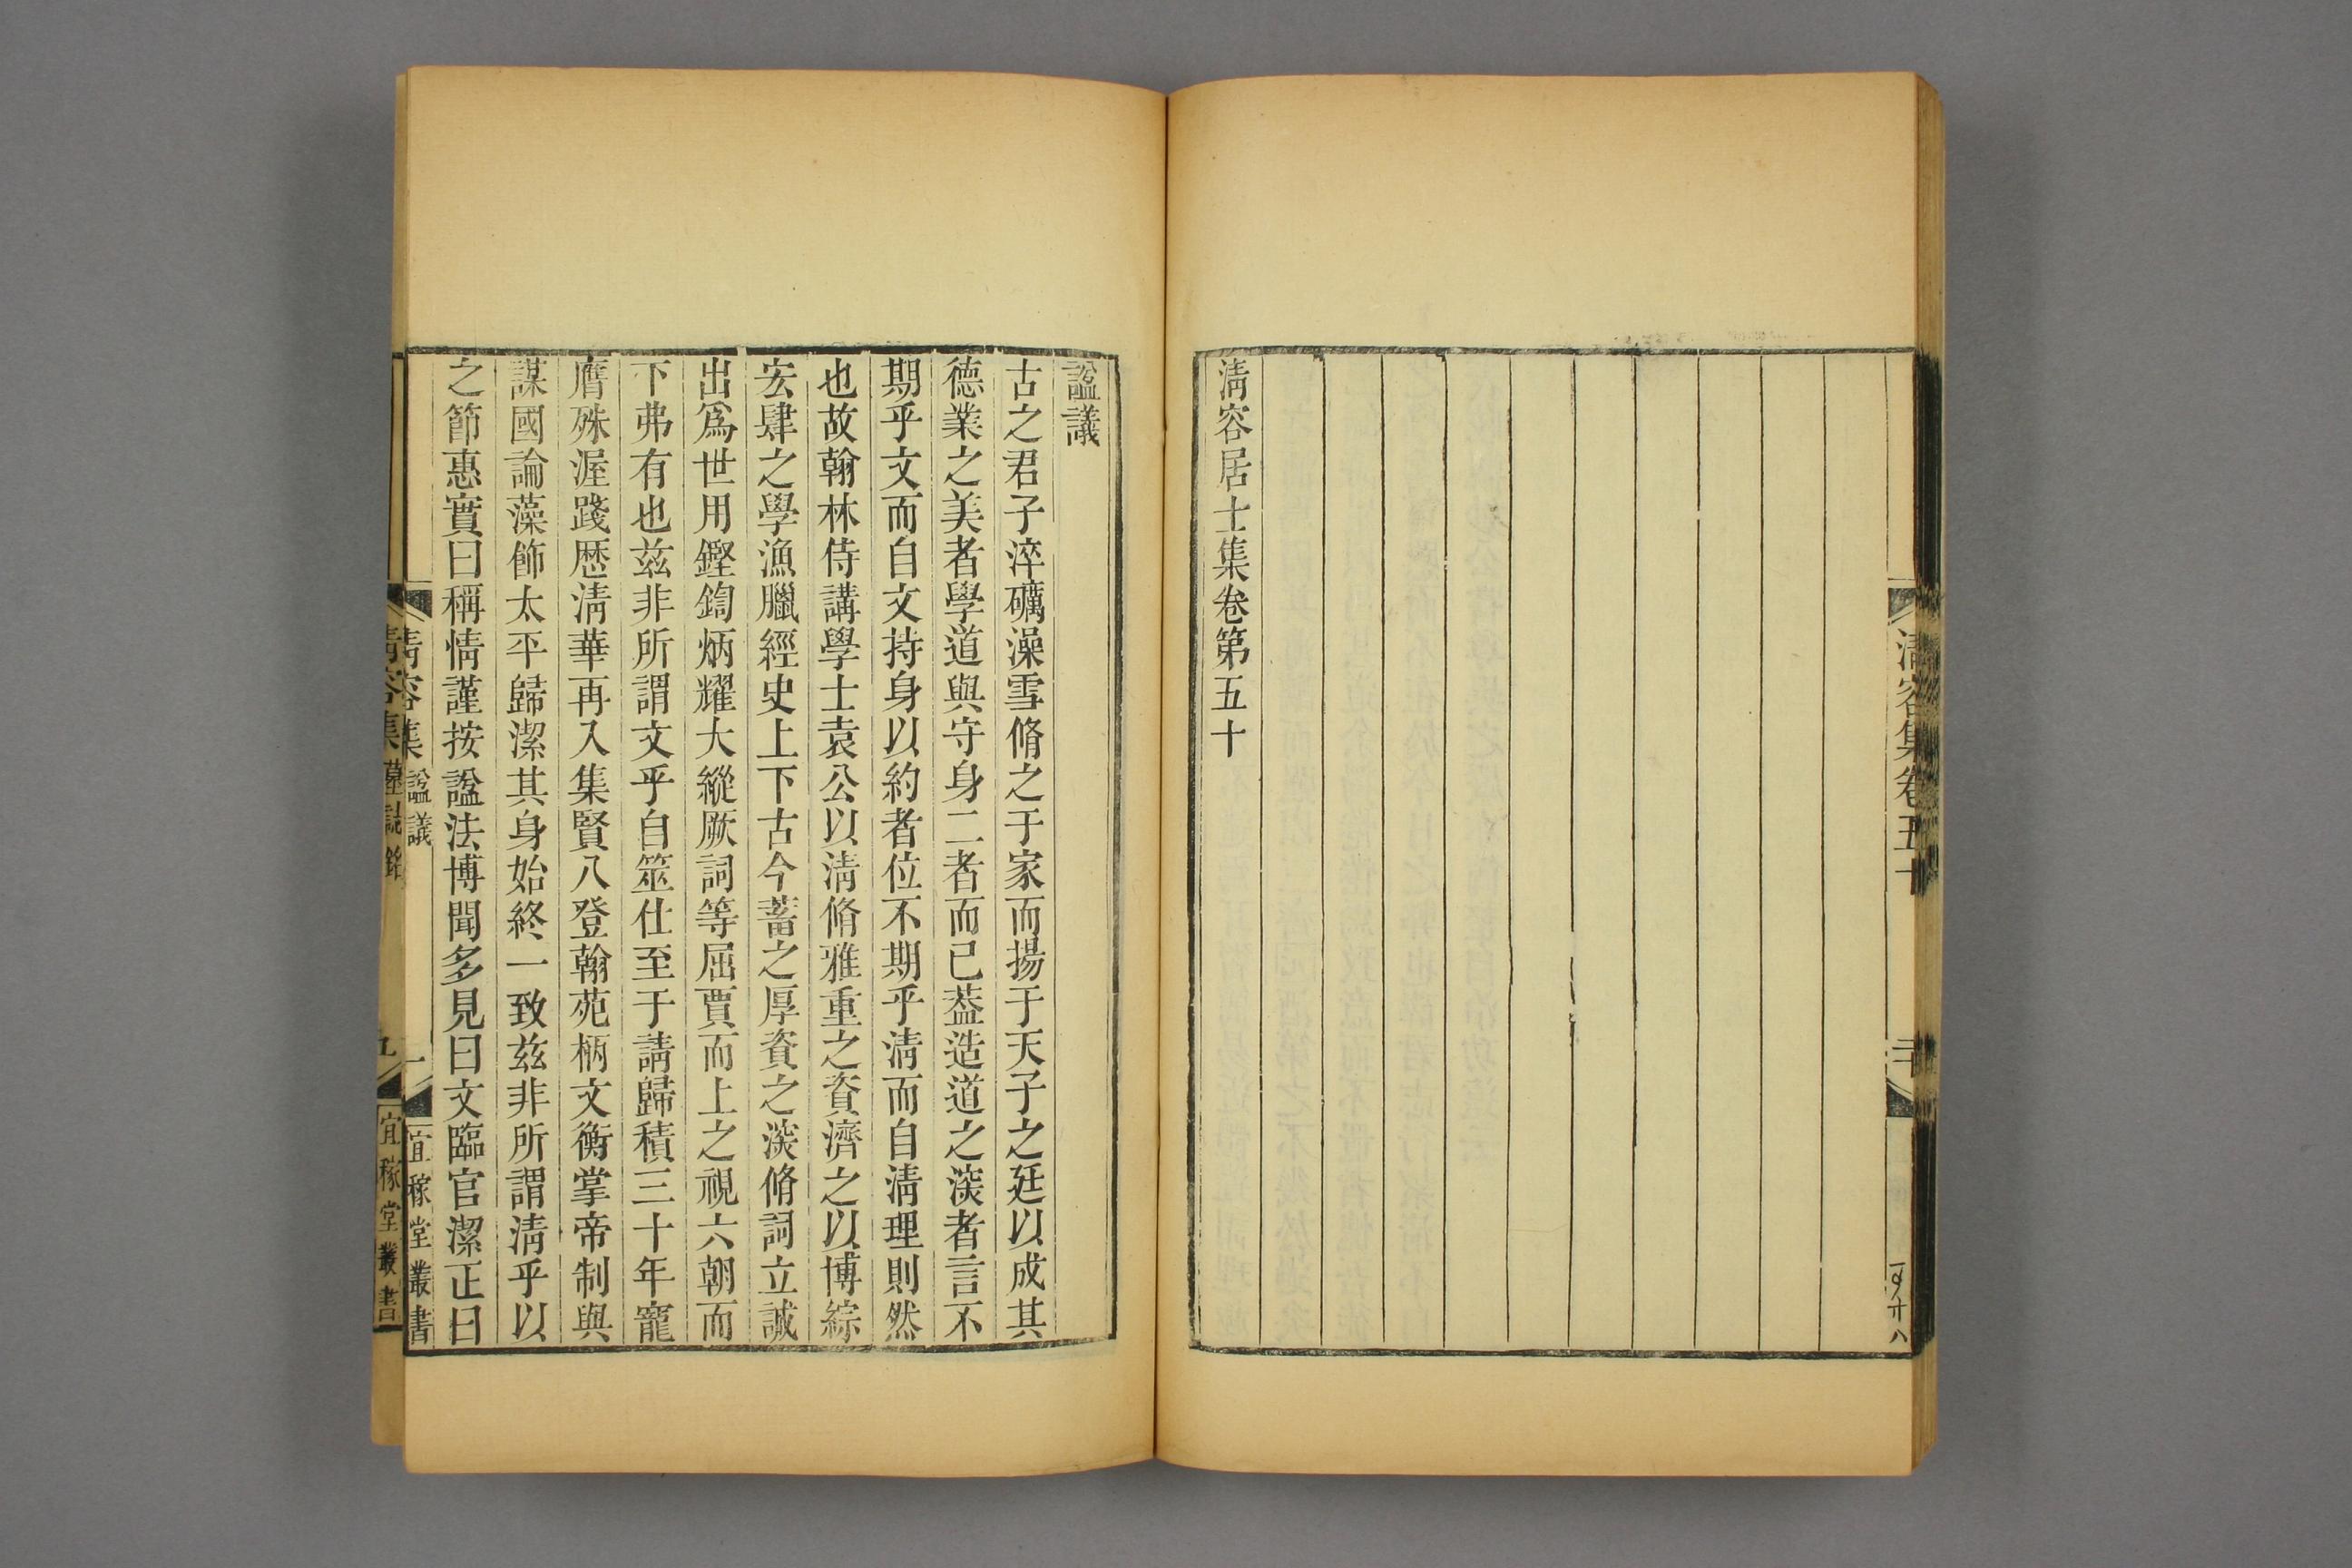 清容集卷五十
二十
清容居士集卷第五十
諡議
古之君子淬礪澡雪脩之于家而揚于天子之廷以成其
德業之美者學道與守身二者而已葢造道之湥者言不
期乎文而自文持身以約者位不期乎清而自清理則然
也故翰林侍講學士袁公以清脩雅重之資濟之以博綜
宏肆之學漁臘經史上下古今蓄之厚資之湥脩詞立誠
出爲世用鏗鍧炳耀大縱厥詞等屈賈而上之視六朝而
下弗有也兹非所謂文乎自筮仕至于請歸積三十年寵
膺殊渥踐歴清華再入集賢八登翰苑柄文衡掌帝制與
謀國論藻飾太平歸潔其身始終一致兹非所謂清乎以
之節惠實曰稱情謹按諡法博聞多見曰文臨官潔正曰
清容集 諡議
一
宜稼堂叢書
清容集 墓誌銘
九
宜稼堂叢書